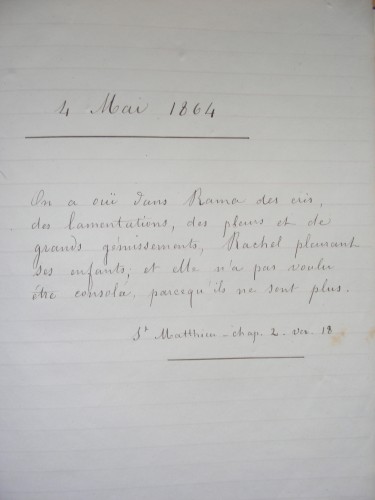 4 Mai 1864
On a ouï dans Rama des cris,
des lamentations, des pleurs et de
grands gémissements, Rachel pleurant
ses enfants, et elle n'a pas voulu
être consolá, parcequ'ils ne sont plus.
St Matthieu - chap. 2 - ver. 18